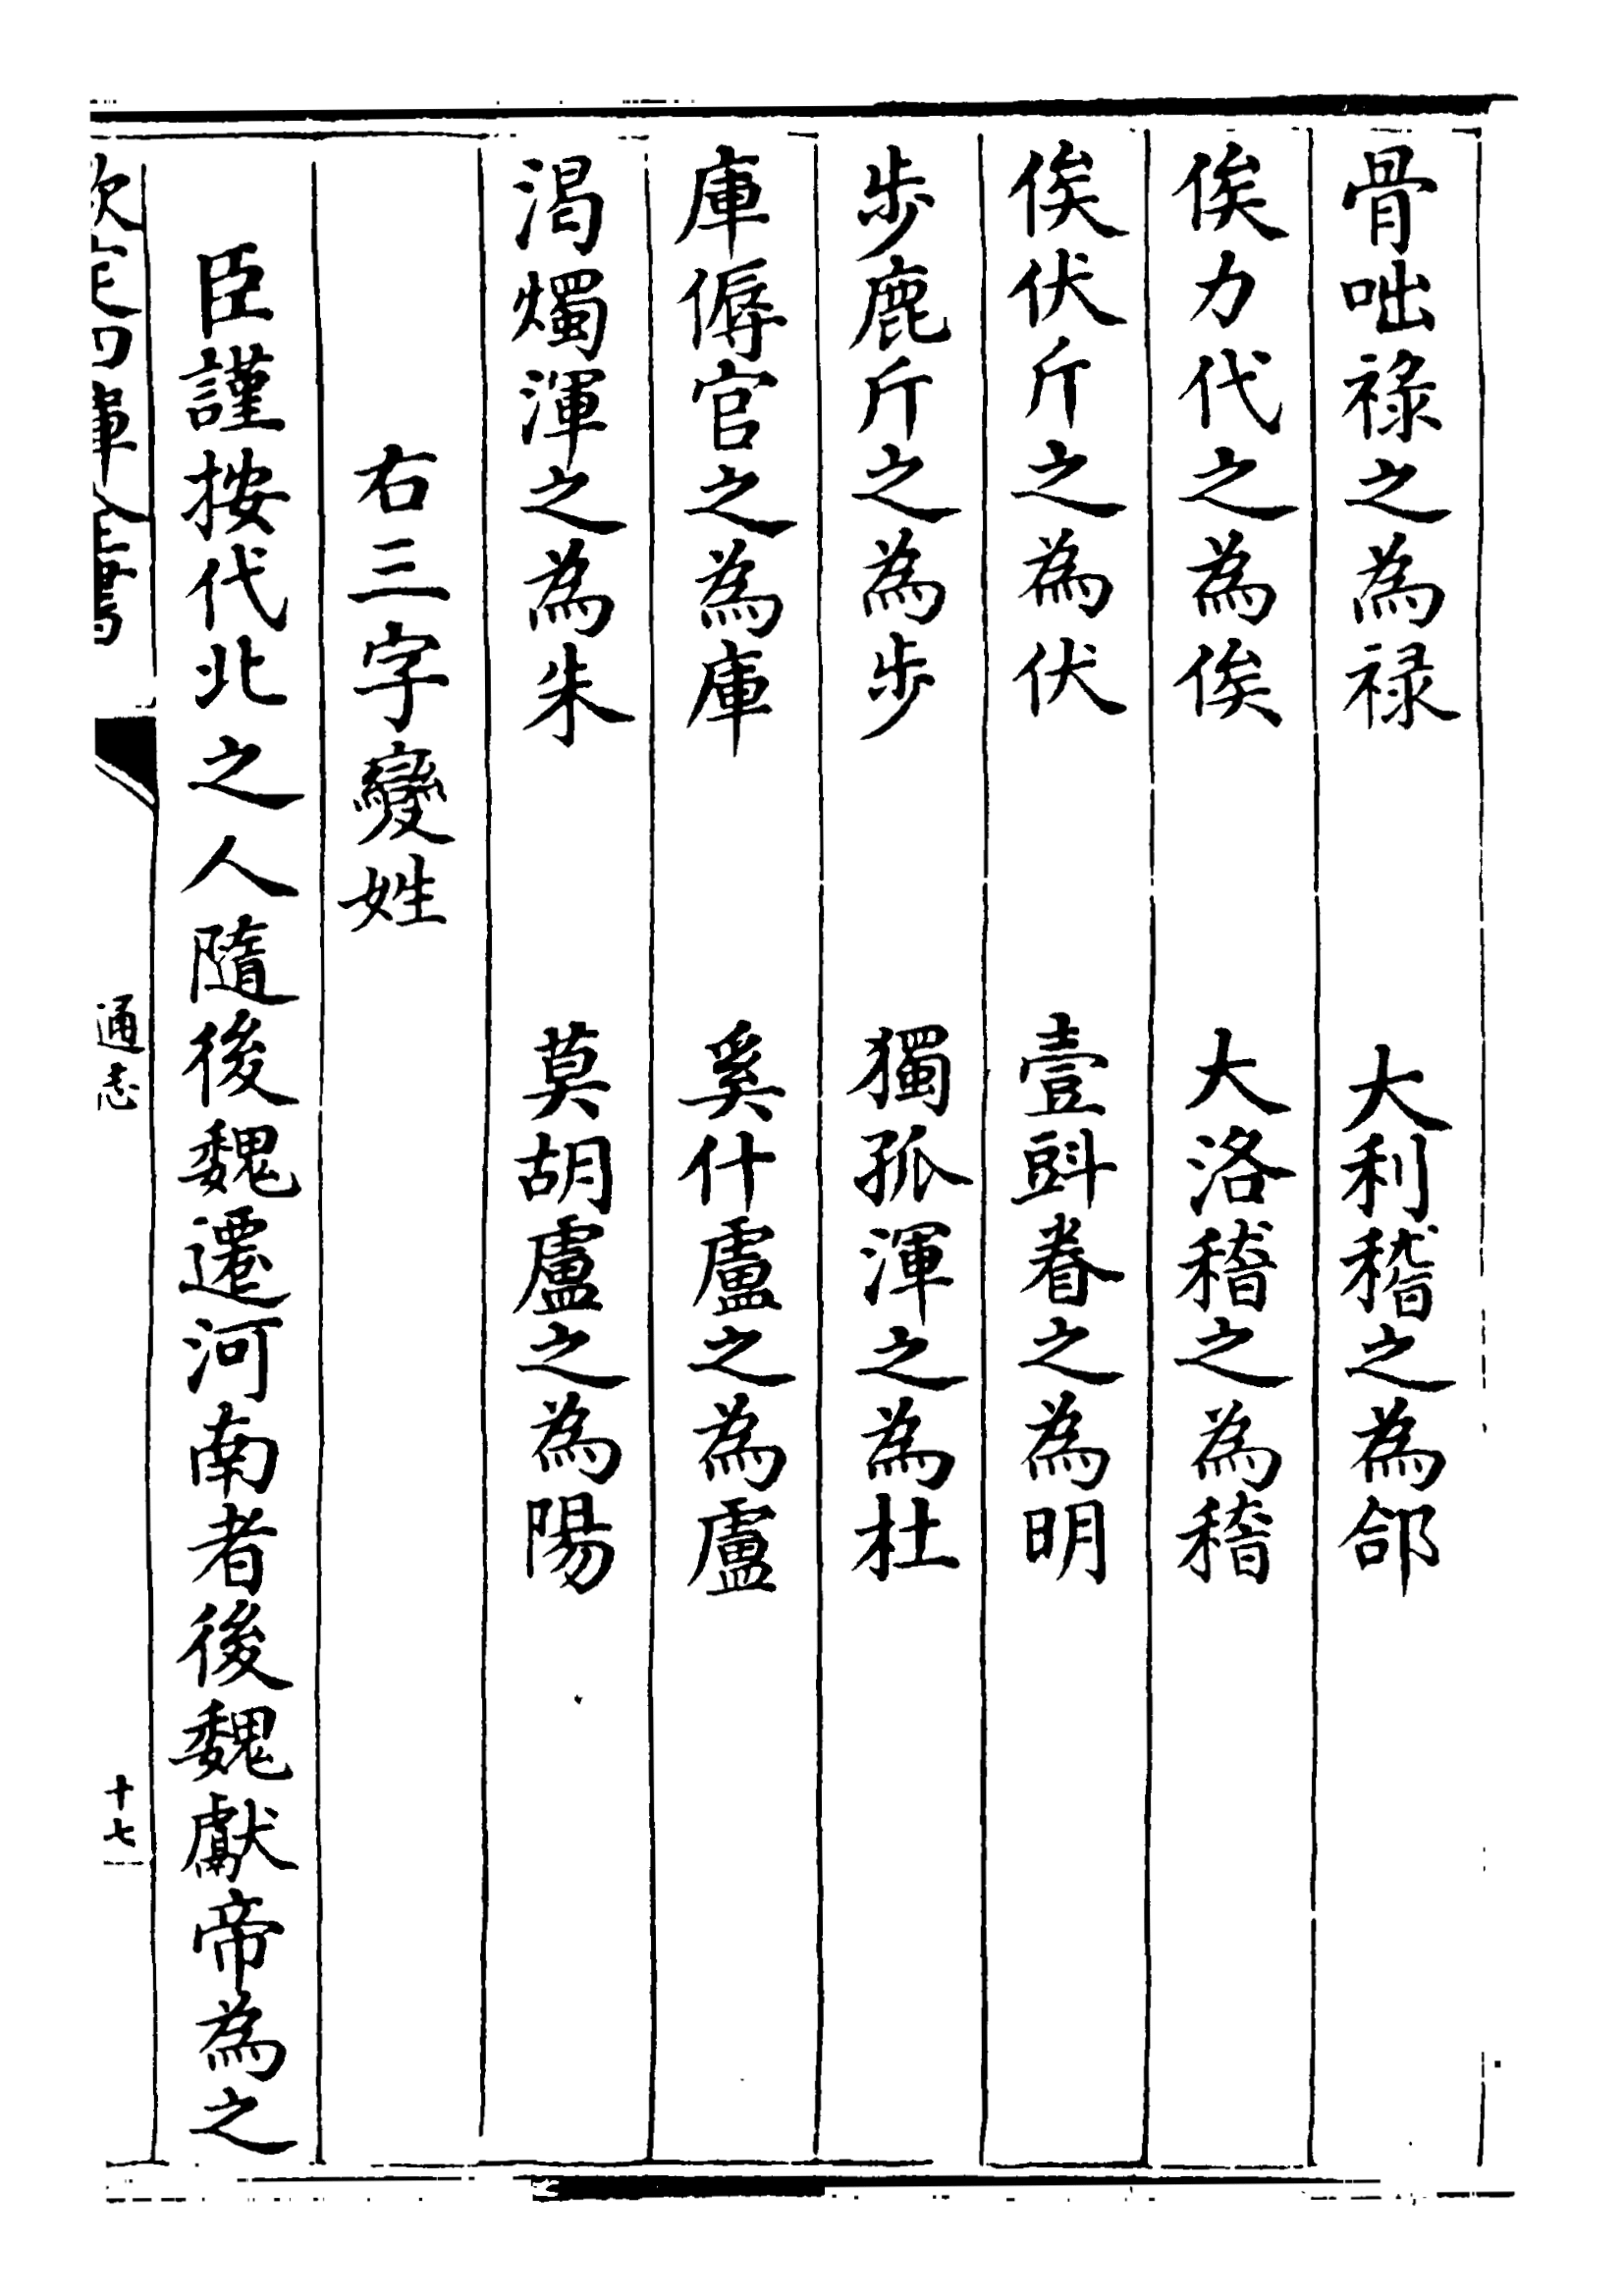 骨咄祿之為禄　大利稽之為郃
俟力代之為俟　大洛稽之為稽
俟伏斤之為伏　壹㪷眷之為明
步鹿斤之為步　獨孤渾之為杜
庫傉官之為庫　奚什盧之為盧
渴燭渾之為朱　莫胡盧之為陽
右三字變姓
臣謹按代北之人隨後魏遷河南者後魏獻帝為之
欽定四庫全書　通志　十七